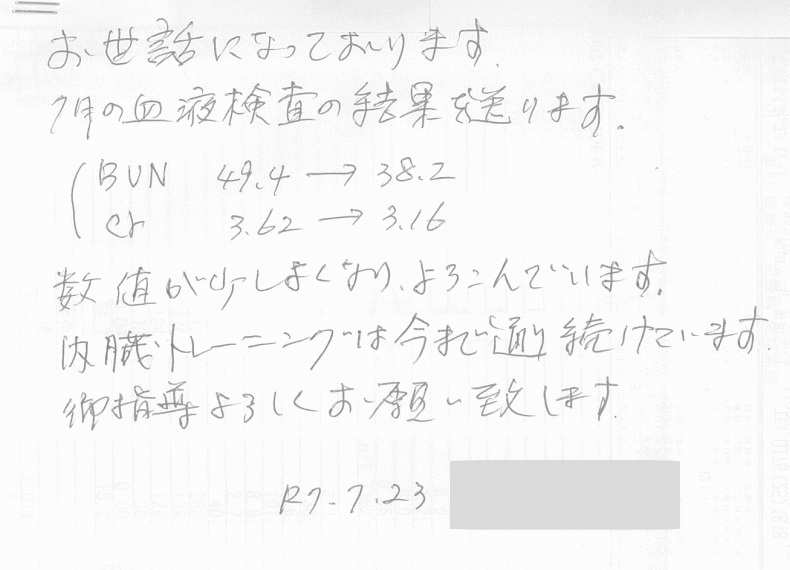 お世話になっております.
7月の血液検査の結果を送ります.
BUN 49.4 → 38.2
Cr 3.62 → 3.16
数値が少しよくなり、よろこんでいます.
内臓トレーニングは今まで通り続けています.
御指導よろしくお願い致します.
R7.7.23